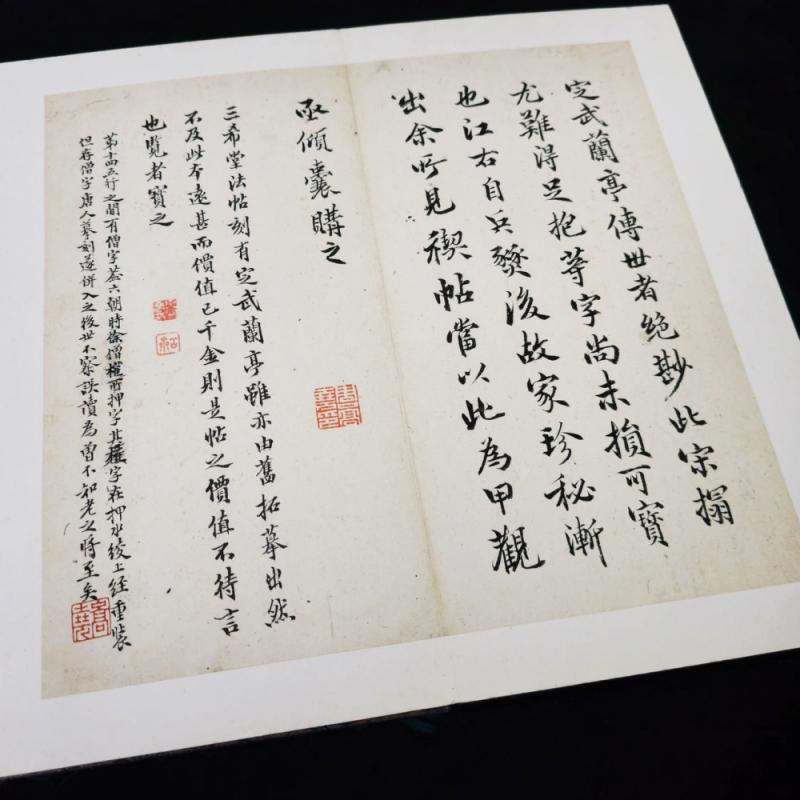 定武蘭亭傳世者絕尠此宋搨
尤難得足抱等字尚未損可寶
也江右自兵燹後故家珍秘漸
出余所見禊帖當以此為甲觀
亟傾囊購之
三希堂法帖刻有定武蘭亭雖亦由舊拓摹出然
不及此本遠甚而價值已千金則是帖之價值不待言
也覽者寶之
第十四五行之間有僧字蓋六朝時徐僧權所押字其權字在押水綾上經重裝
但存僧字唐人摹刻遂併入之後世不察誤讀為曾不知老之將至矣